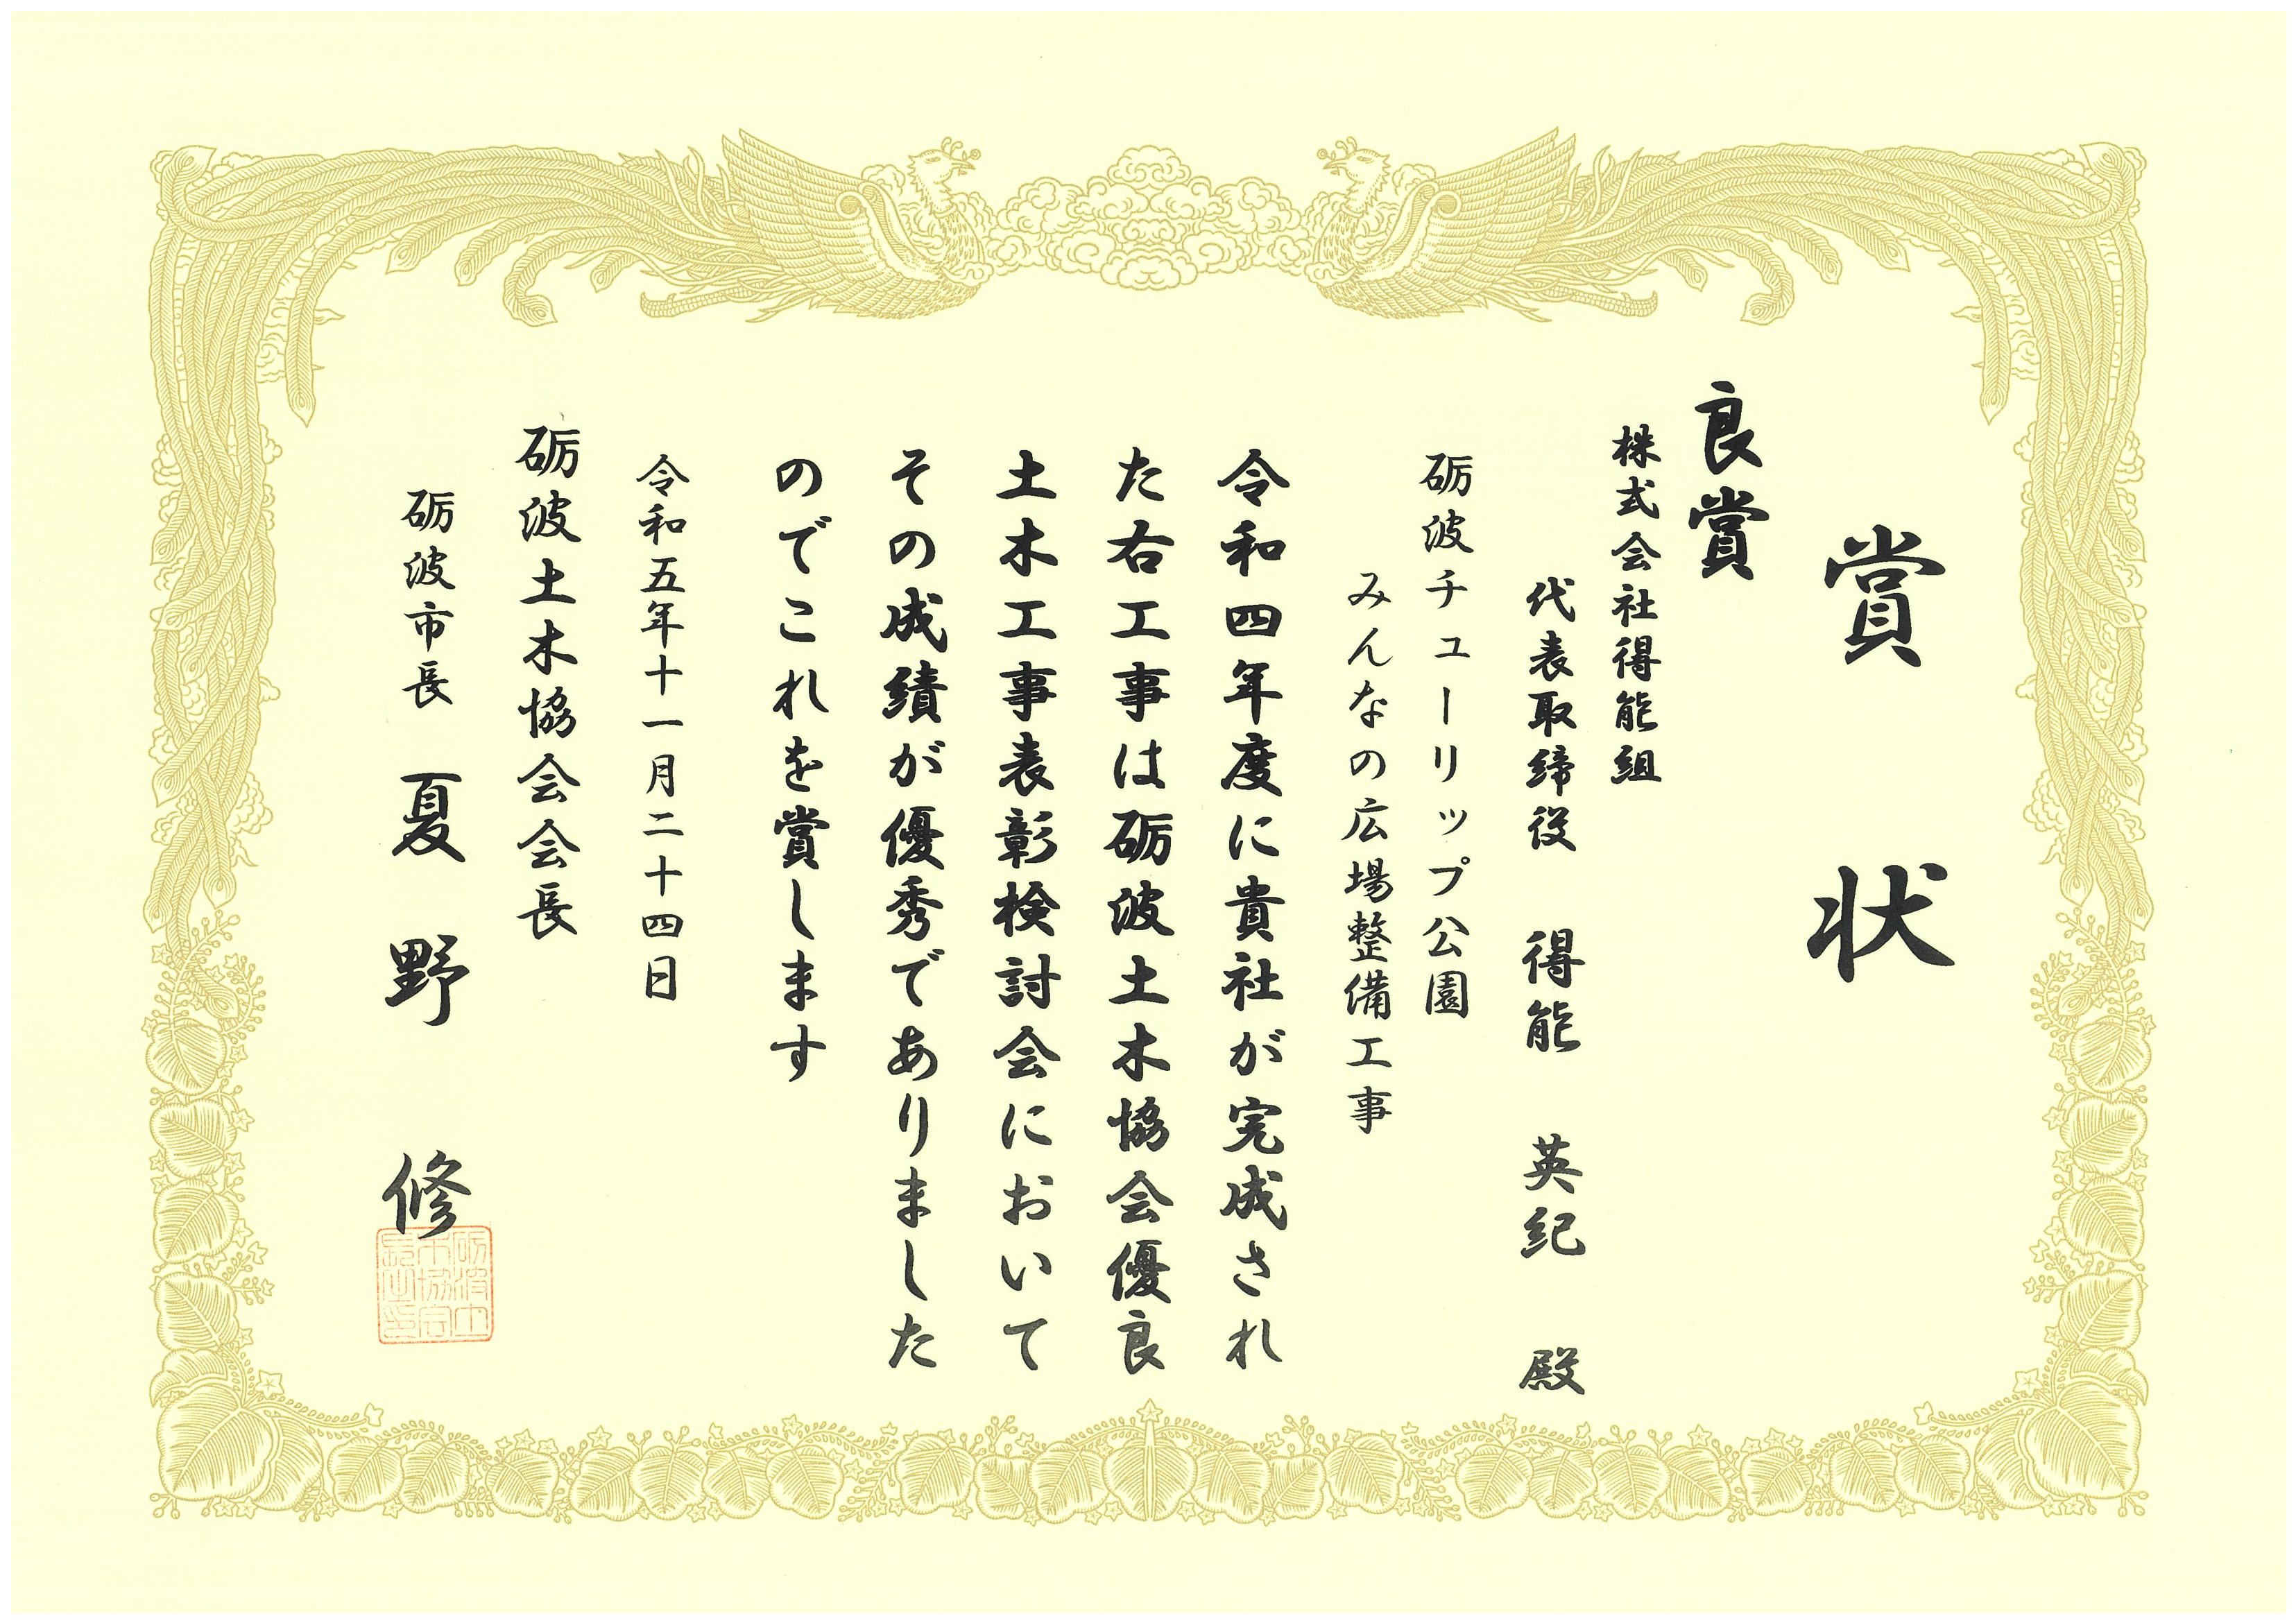 賞状
良賞
株式会社得能組
代表取締役 得能 英紀 殿
砺波チューリップ公園
みんなの広場整備工事
令和四年度に貴社が完成され
た右工事は砺波土木協会優良
土木工事表彰検討会において
その成績が優秀でありました
のでこれを賞します
令和五年十一月二十四日
砺波土木協会会長
砺波市長 夏野 修
砺波土木協会長之印